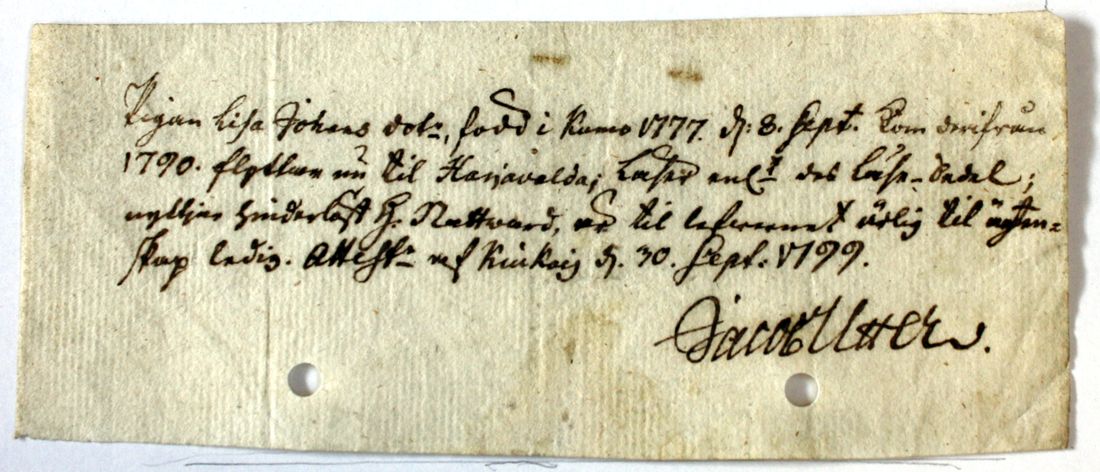 Pigan Lisa Johans dotr, född i Kumo 1777. d: 8. Sept. kom derifrån
1790. flyttar nu til Harjavalda; Läser enlt des läse-Sedel;
nyttjar hinderlöst H. Nattward, är til lefwernet ärlig til ägten-
skap ledig. Attestr af Kiukais d. 30. Sept. 1799.
Jacob Utter.